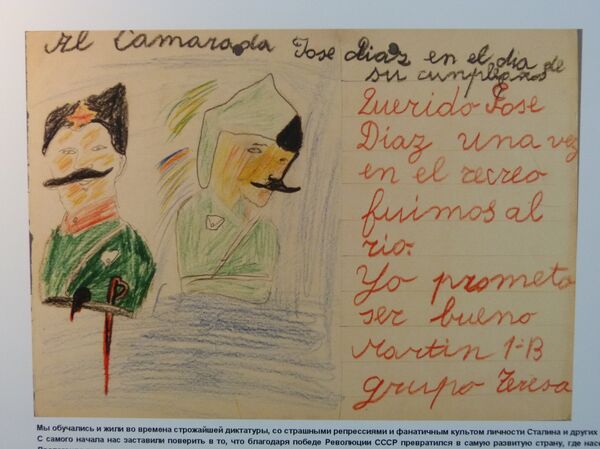 Al Camarada Jose diaz en el dia de
su cumpleaños
Querido Jose
Diaz una vez
en el recreo
fuimos al
rio.
Yo prometo
ser bueno
Martin 1-B
grupo Teresa
Мы обучались и жили во времена строжайшей диктатуры, со страшными репрессиями и фанатичным культом личности Сталина и других
С самого начала нас заставили поверить в то, что благодаря победе Революции СССР превратился в самую развитую страну, где нас